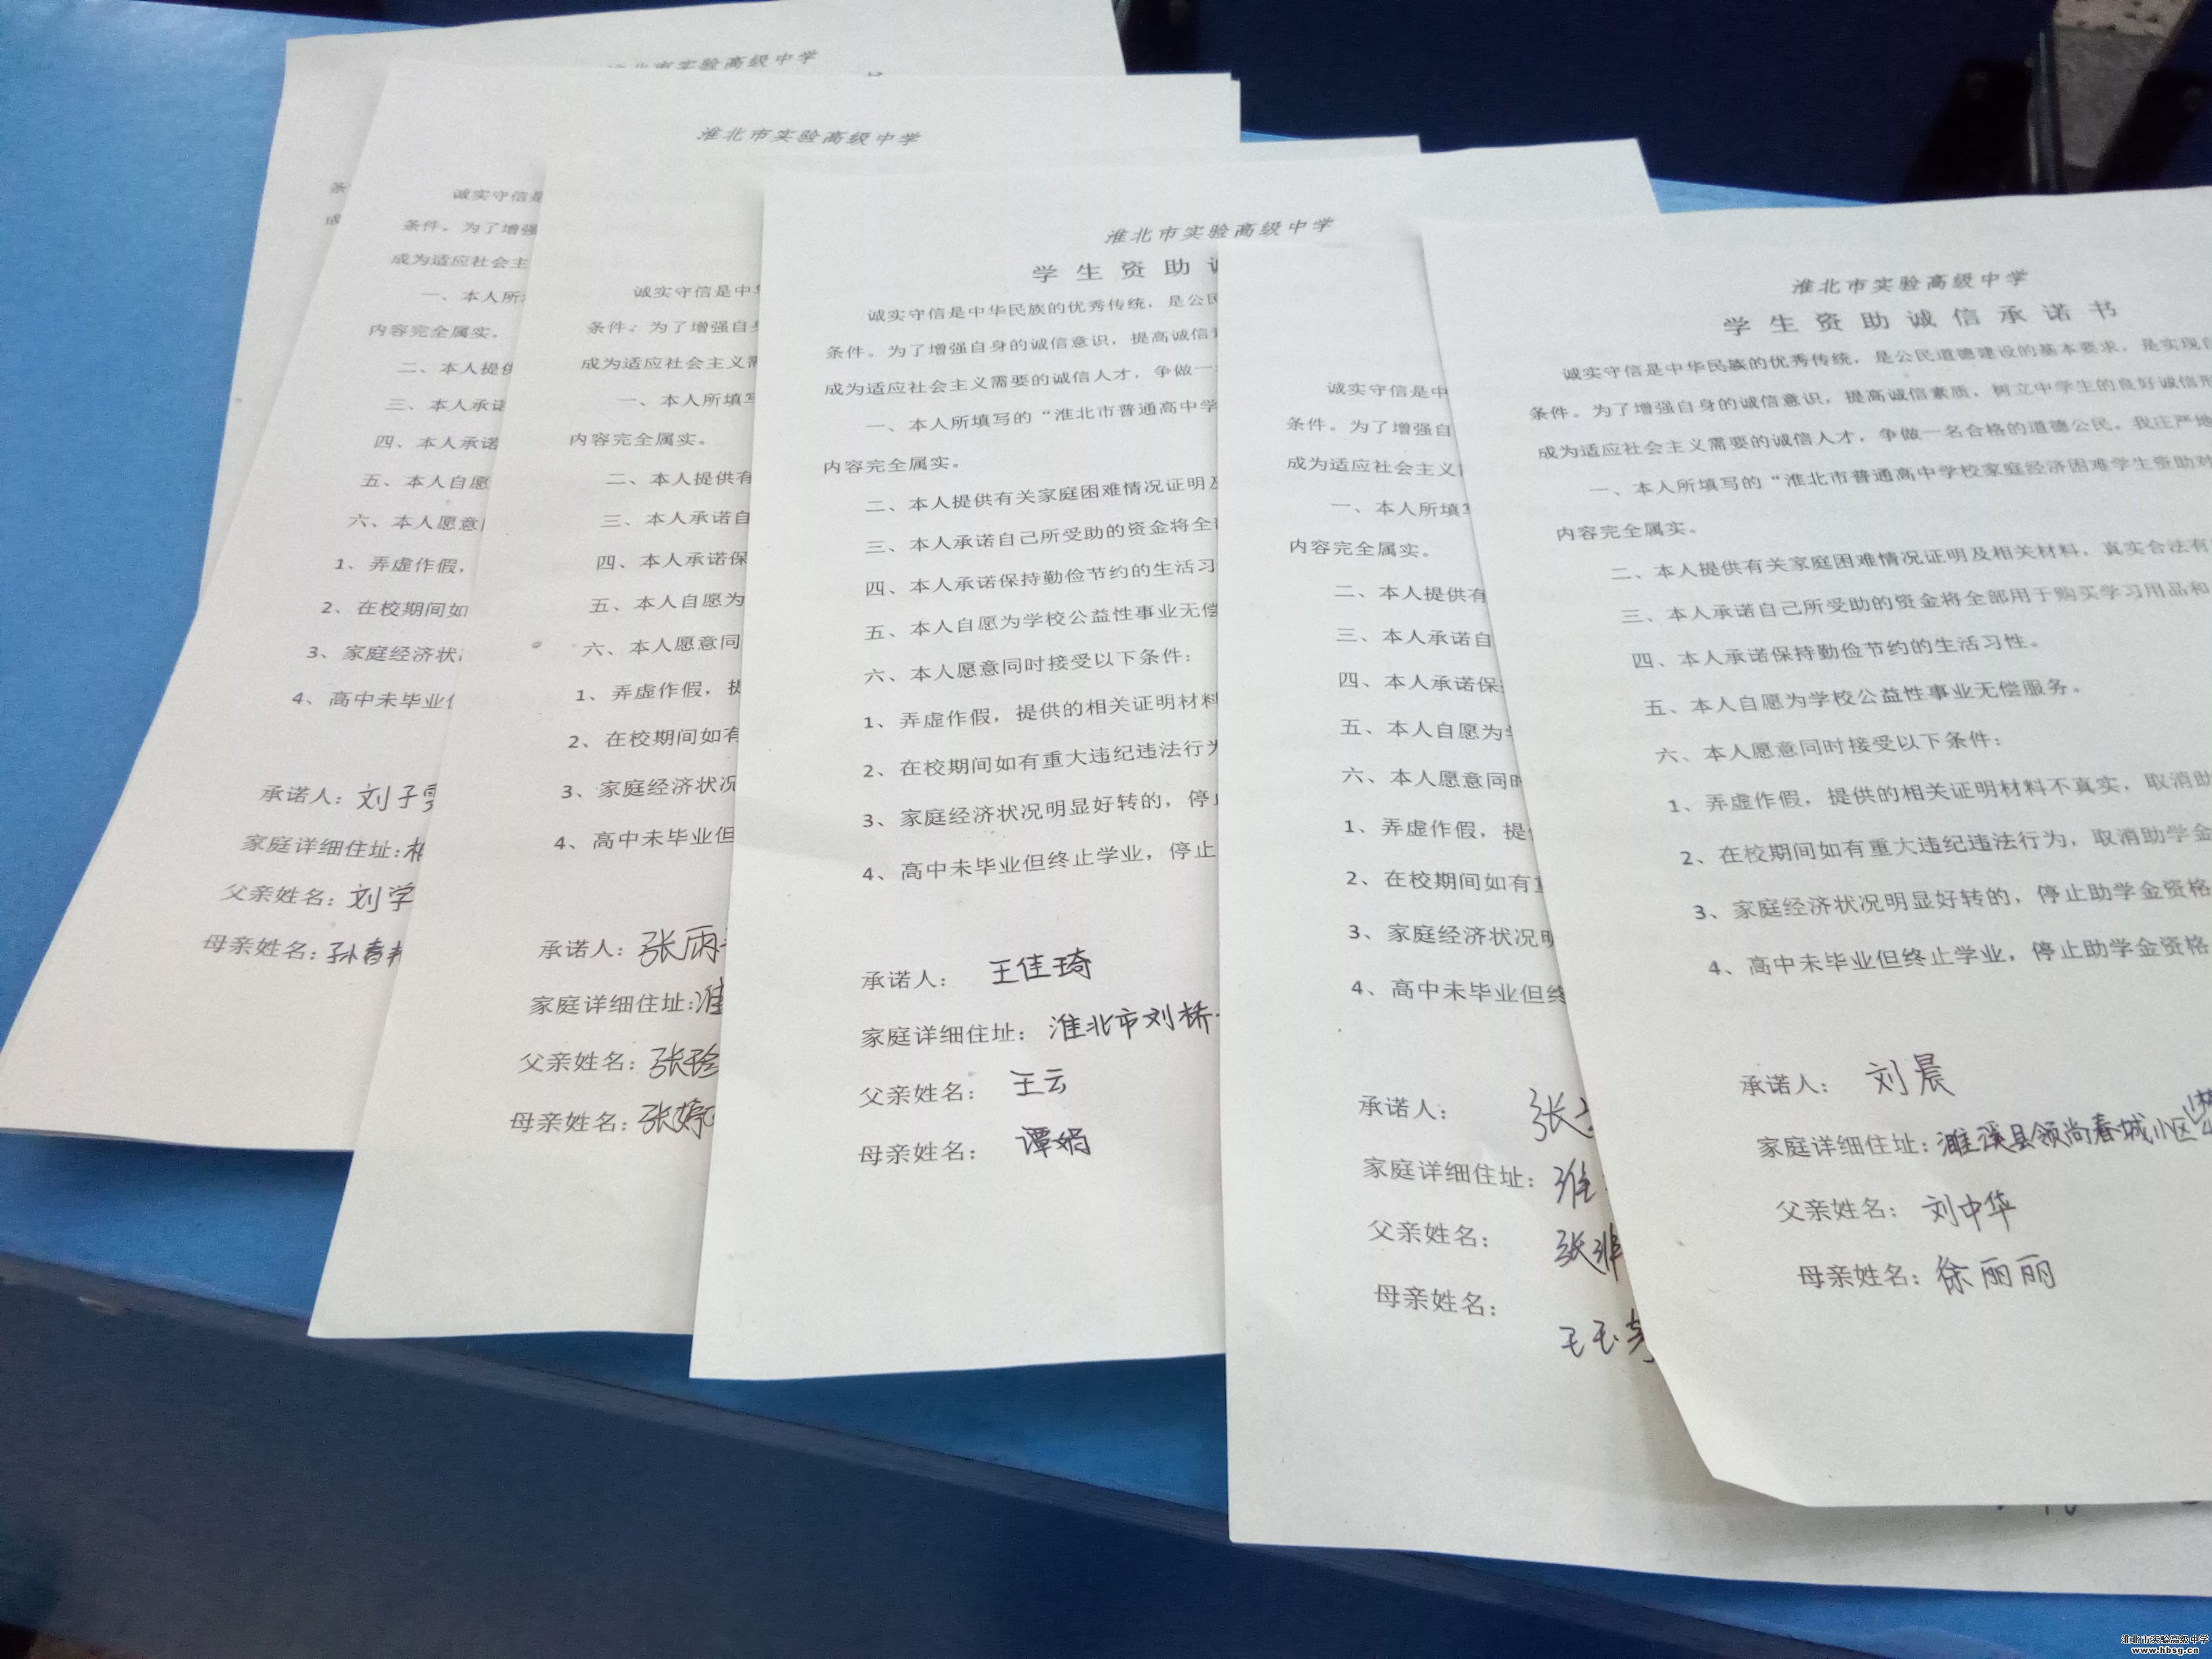 淮北市实验高级中学
条
成
淮北市实验高级中学
诚实守信是
条件。为了增强
成为适应社会主
一、本人所
内容完全属实。
二、本人提供
三、本人承诺
四、本人承诺
五、本人自愿
六、本人愿意
1、弄虚作假，
2、在校期间如
3、家庭经济状
4、高中未毕业
承诺人：刘子
家庭详细住址：
父亲姓名：刘学
母亲姓名：孙春
诚实守信是中
条件。为了增强自
成为适应社会主义
一、本人所填写
内容完全属实。
二、本人提供有
三、本人承诺自
四、本人承诺保
五、本人自愿为
六、本人愿意同
1、弄虚作假，提
2、在校期间如有
3、家庭经济状况
4、高中未毕业但
承诺人：张雨
家庭详细住址：淮
父亲姓名：张珍
母亲姓名：张婷
淮北市实验高级中学
学生资助
诚实守信是中华民族的优秀传统，是公民
条件。为了增强自身的诚信意识，提高诚信
成为适应社会主义需要的诚信人才，争做一
一、本人所填写的“淮北市普通高中学
内容完全属实。
二、本人提供有关家庭困难情况证明及
三、本人承诺自己所受助的资金将全
四、本人承诺保持勤俭节约的生活习
五、本人自愿为学校公益性事业无偿
六、本人愿意同时接受以下条件：
1、弄虚作假，提供的相关证明材料
2、在校期间如有重大违纪违法行为
3、家庭经济状况明显好转的，停止
4、高中未毕业但终止学业，停止
承诺人：王佳琦
家庭详细住址：淮北市刘桥
父亲姓名：王云
母亲姓名：谭娟
诚实守信是中
条件。为了增强自
成为适应社会主义
一、本人所填
内容完全属实。
二、本人提供有
三、本人承诺自
四、本人承诺保
五、本人自愿为
六、本人愿意同时
1、弄虚作假，提
2、在校期间如有
3、家庭经济状况
4、高中未毕业但终
承诺人：张
家庭详细住址：淮
父亲姓名：张
母亲姓名：
王玉
淮北市实验高级中学
学生资助诚信承诺书
诚实守信是中华民族的优秀传统，是公民道德建设的基本要求，是实现自
条件。为了增强自身的诚信意识，提高诚信素质，树立中学生的良好诚信形
成为适应社会主义需要的诚信人才，争做一名合格的道德公民。我庄严地
一、本人所填写的“淮北市普通高中学校家庭经济困难学生资助对
内容完全属实。
二、本人提供有关家庭困难情况证明及相关材料，真实合法有
三、本人承诺自己所受助的资金将全部用于购买学习用品和
四、本人承诺保持勤俭节约的生活习性。
五、本人自愿为学校公益性事业无偿服务。
六、本人愿意同时接受以下条件：
1、弄虚作假，提供的相关证明材料不真实，取消助
2、在校期间如有重大违纪违法行为，取消助学金
3、家庭经济状况明显好转的，停止助学金资格
4、高中未毕业但终止学业，停止助学金资格
承诺人：刘晨
家庭详细住址：濉溪县领尚春城小区
父亲姓名：刘中华
母亲姓名：徐丽丽
淮北市实验高级中学
www.hbsg.cn